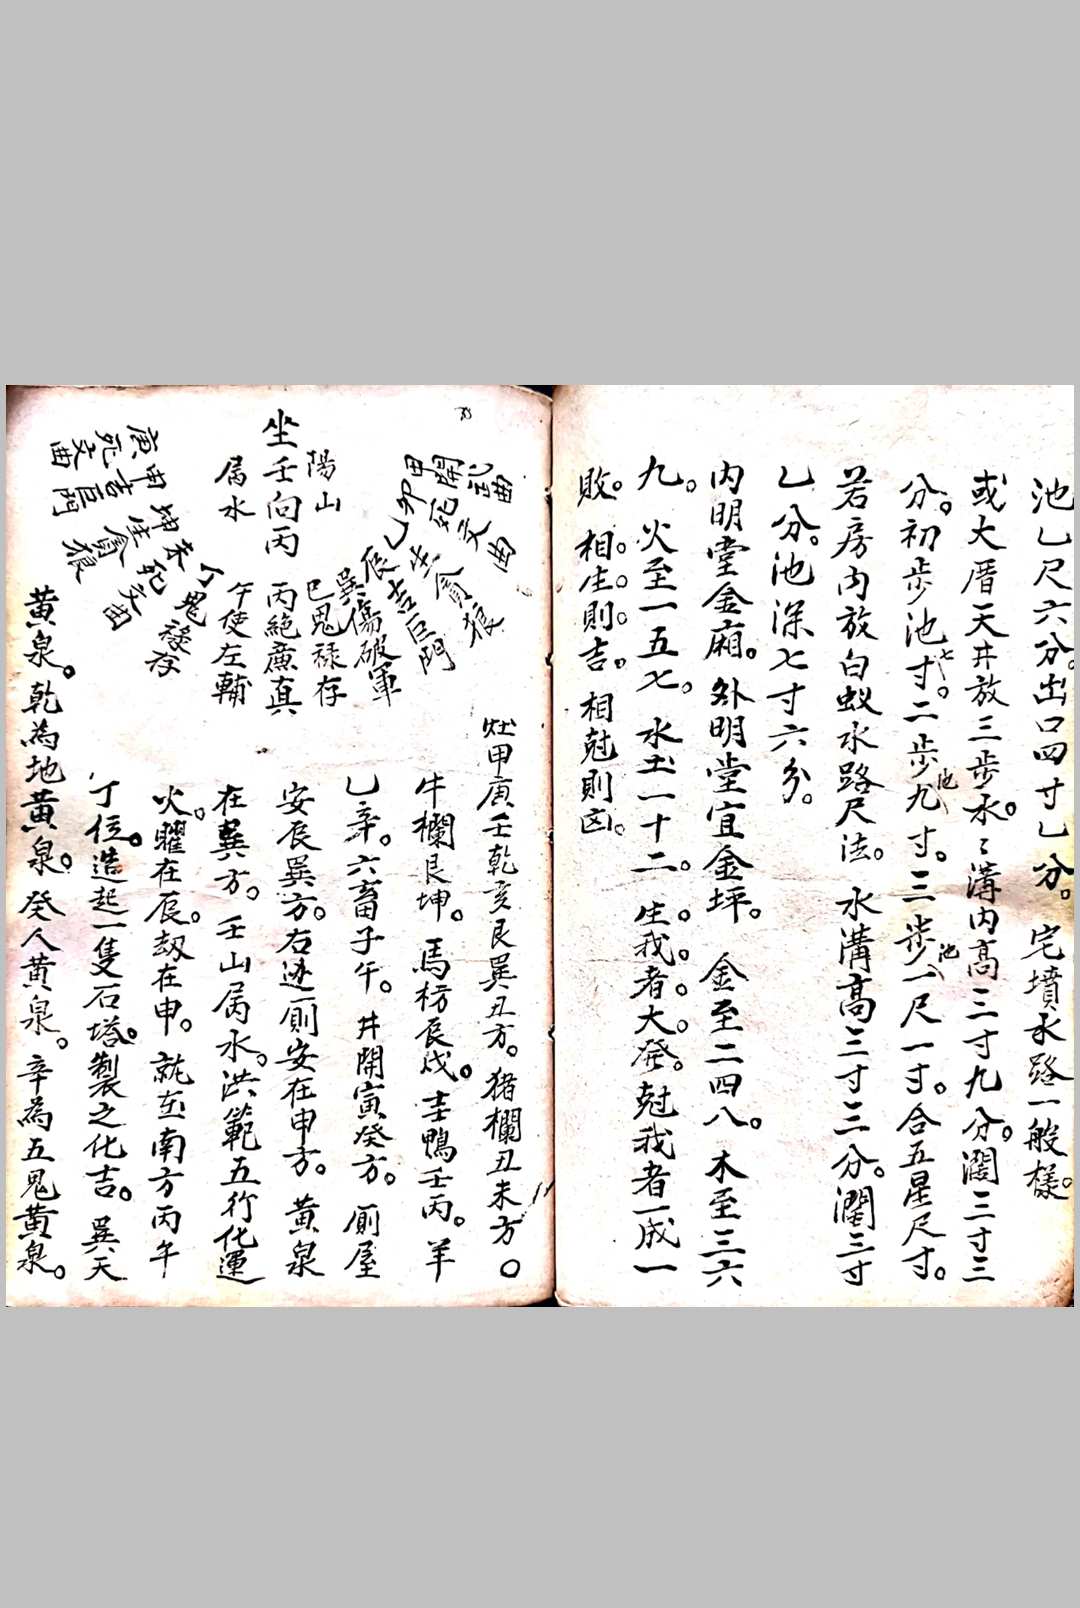 池乙尺六分。出口四寸乙分。宅墳水路一般樣。
或大厝天井放三步水。水溝內高三寸九分。濶三寸三
分。初步池七寸。二步池九寸。三步池一尺一寸。合五星尺寸。
若房內放白蚁水路尺法。水溝高三寸三分。濶三寸
乙分。池深七寸六分。
內明堂金廂。外明堂宜金坪。金至二四八。木至三六
九。火至一五七。水土一十二。生我者。大發。尅我者一成一
敗。相生則吉。相尅則凶。
甲開武曲
卯死文曲
乙生貪狼
辰吉巨門
巽傷破軍
巳鬼禄存
陽山
坐壬向丙
丙絕廉真
属水
午使左輔
丁鬼禄存
未死文曲
坤生貪狼
申吉巨門
庚死文曲
灶甲庚壬乾亥艮巽丑方。猪欄丑未方。
牛欄艮坤。馬枋辰戌。鴨壬丙。羊
乙辛。六畜子午。井開寅癸方。廁屋
安辰巽方。右边廁安在申方。黃泉
在巽方。壬山属水。洪範五行化運
火。曜在辰。刼在申。就在南方丙午
丁位。造起一隻石塔。製之化吉。巽天
黃泉。乾為地黃泉。癸人黃泉。辛為五鬼黃泉。